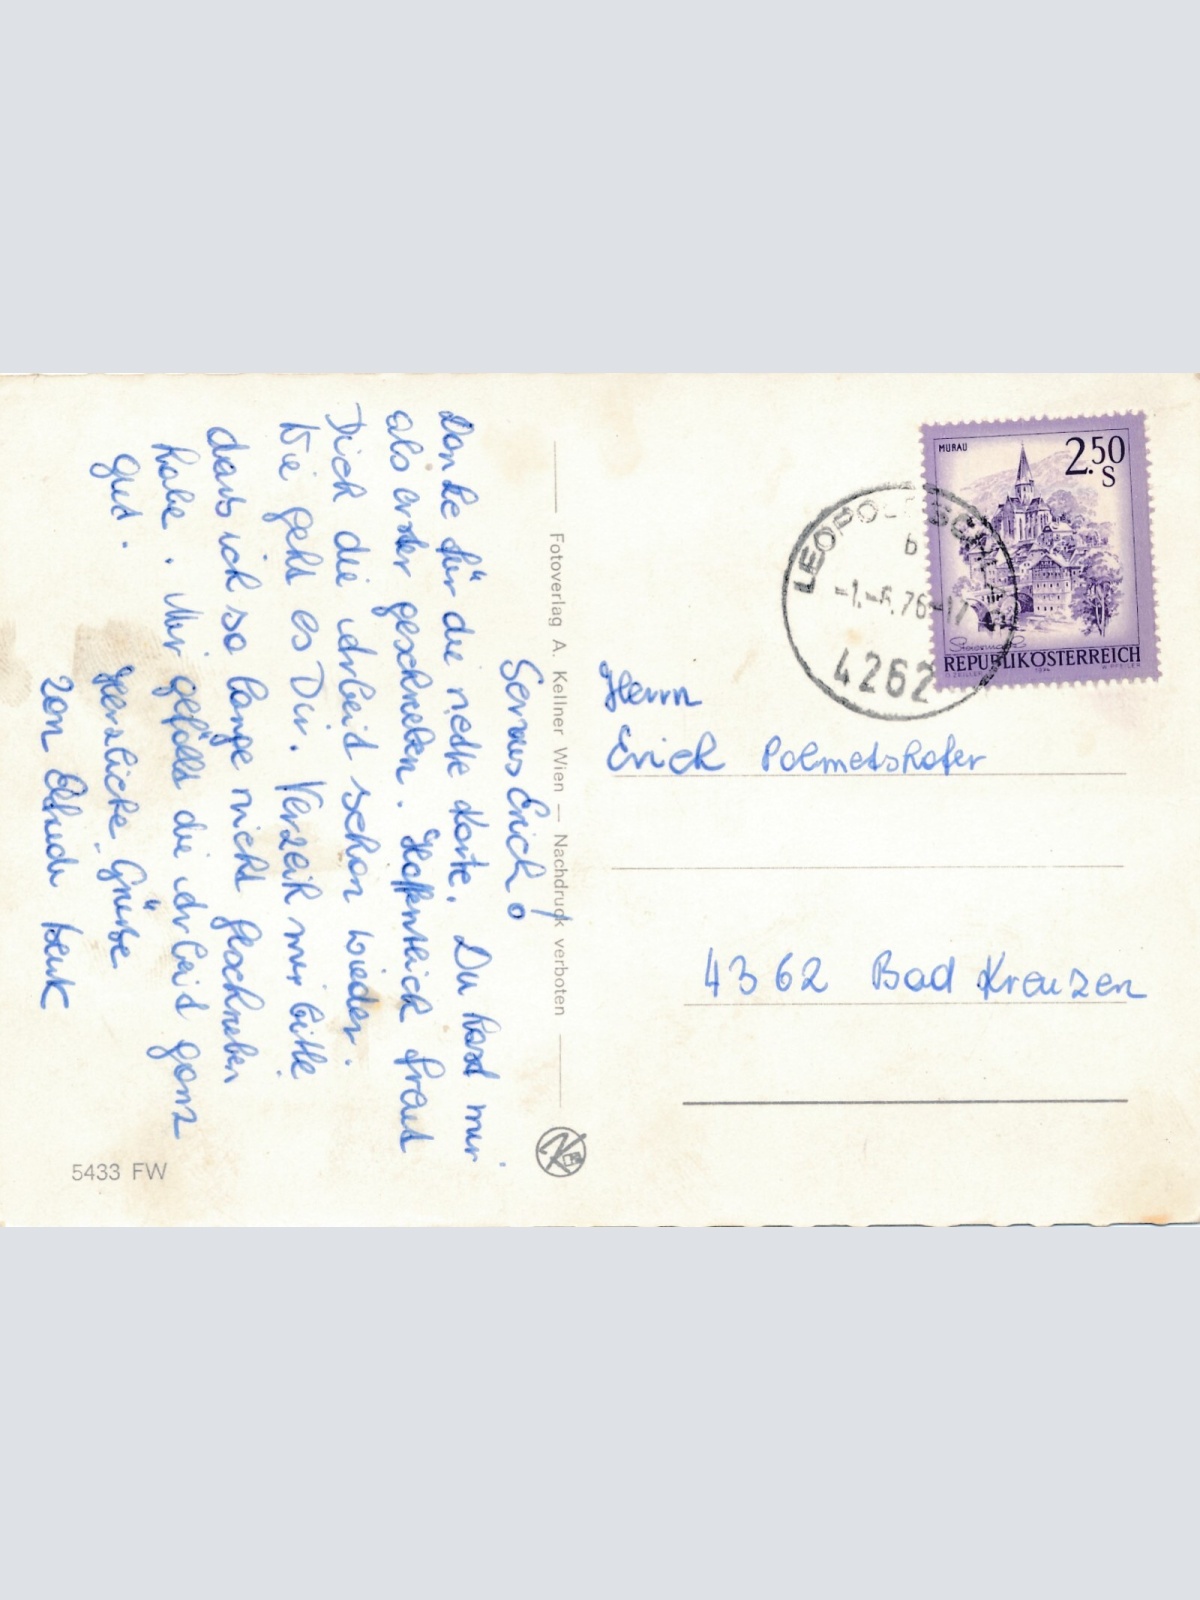 Servus Erich!
Danke für die nette Karte. Du hast mir
als erster geschrieben. Hoffentlich freut
Dich die Arbeit schon wieder.
Wie geht es Dir. Verzeih mir bitte
dass ich so lange nicht geschrieben
habe. Mir gefällt die Arbeit ganz
gut.
Herzliche Grüße
von
5433 FW
Fotoverlag A. Kellner Wien — Nachdruck verboten
MURAU
2.50
S
Steiermark
REPUBLIK ÖSTERREICH
LEOPOLDSCHLAG
b
-1.-6.76-17
4262
Herrn
Erich Polmetshofer
4362 Bad Kreuzen